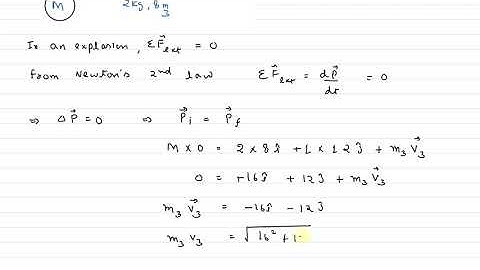 M 2kg, 8 m/s
In an explosion, ΣF⃗ext = 0
from Newton's 2nd law ΣF⃗ext = dp⃗/dt = 0
⇒ ΔP⃗ = 0 ⇒ P⃗i = P⃗f
M × 0 = 2 × 8î + 1 × 12ĵ + m₃ v⃗₃
0 = +16î + 12ĵ + m₃ v⃗₃
m₃ v⃗₃ = -16î - 12ĵ
m₃ v₃ = √16² + 1